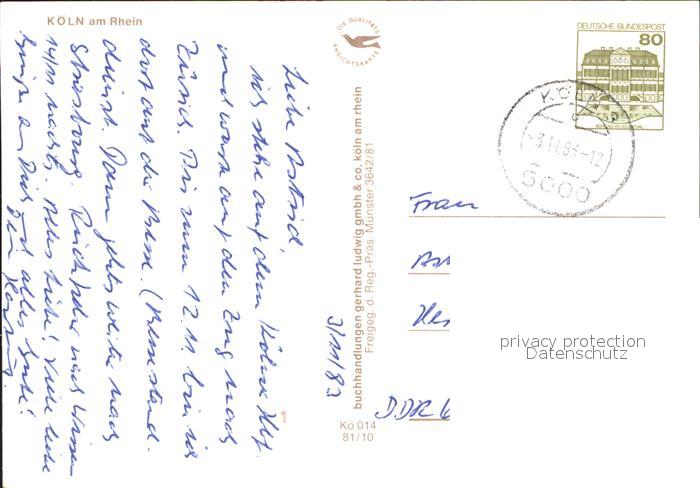 KÖLN am Rhein
DIE QUALITÄTS
ANSICHTSKARTE
DEUTSCHE BUNDESPOST
80
KÖLN
-3.11.83-12
5000
Liebe Astrid,
ich stehe auf dem Kölner Hbf.
und warte auf den Zug nach
Zürich. Bis zum 12.11 bin ich
dort auf der Messe. (Messestand-
dienst. Dann geht's weiter nach
Straßburg. Rückkehr nach
14/11 nachts. Alles Liebe! Viele liebe
Grüße an Dich und alles Gute!
Dein
3/11/83
buchhandlungen gerhard ludwig gmbh & co. köln am rhein
Freigeg. d. Reg.-Präs. Münster 3642/81
Kö 014
81/10
Frau
DDR
privacy protection
Datenschutz